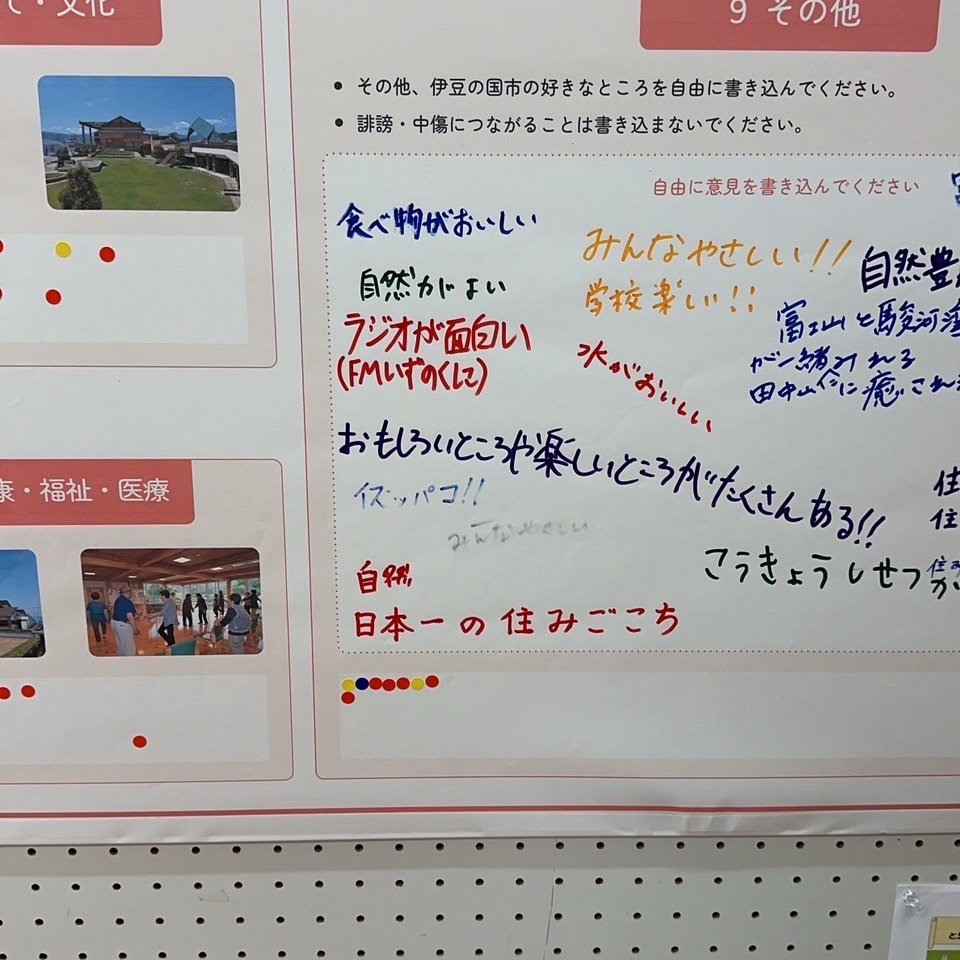 て・文化
9 その他
• その他、伊豆の国市の好きなところを自由に書き込んでください。
• 誹謗・中傷につながることは書き込まないでください。
自由に意見を書き込んでください
食べ物がおいしい
みんなやさしい!!
学校楽しい!!
自然豊
自然がよい
ラジオが面白い
(FMいずのくに)
水がおいしい
富士山と駿河湾
が一緒にみれる
田中山に癒され
おもしろいところや楽しいところがたくさんある!!
イズッパコ!!
みんなやさしい
住
住
こうきょうしせつ
住み
が
自然
日本一の住みごこち
康・福祉・医療